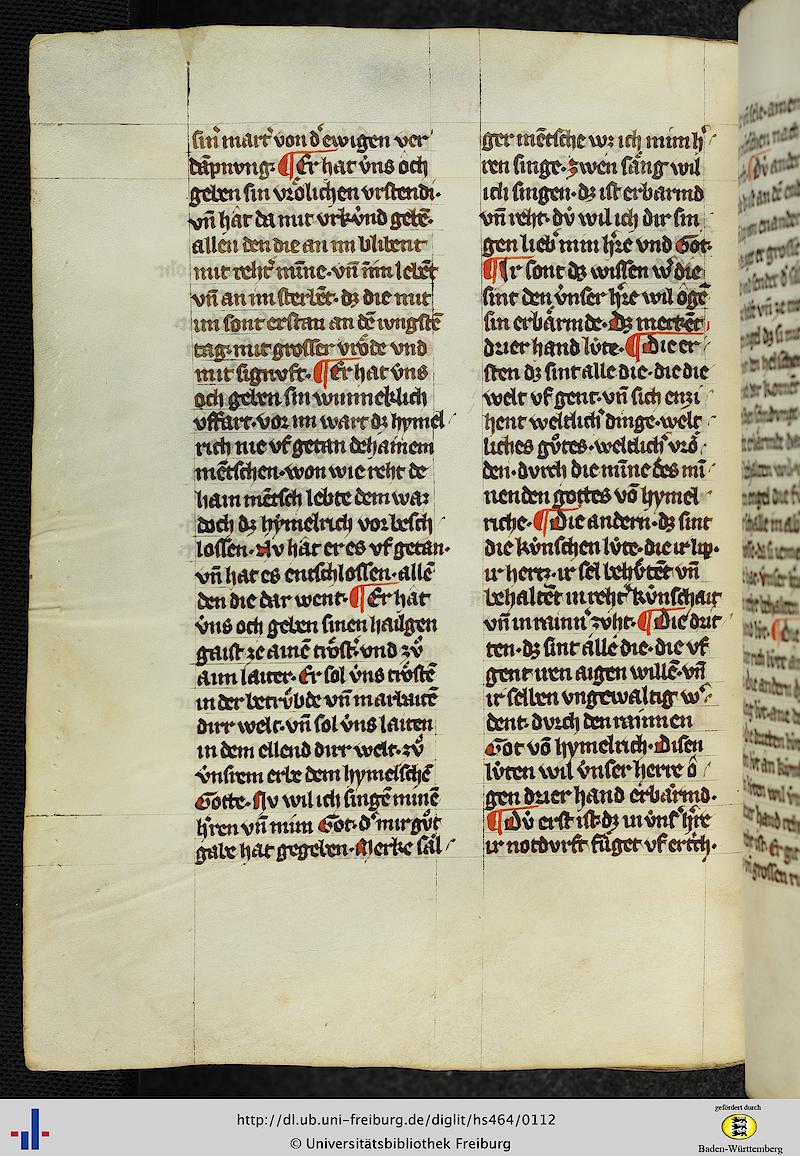 sin̄ mart᷑ von d᷑ ewigen ver
dāpnvng· ¶ Er hat v́ns och
geben sin vrŏlichen vrstendi·
vn̄ hāt da mit vrkv́nd gebē·
allen den die an im blibent
mit reht᷑ mīne· vn̄ im̄ lebēt
vn̄ an im sterbēt· dz die mit
im sont erstan an dē ivngstē
tag· mit grosser vrŏde vnd
mit signvft· ¶ Er hat v́ns
och geben sin wunneklich
vffart· vor im wart dz hymel
rich nie vf getan dehainem
mētschen· won wie reht de
hain mētsch lebte dem waz
doch dz hymelrich vor besch
lossen· Nv hāt er es vf getan·
vn̄ hat es entschlossen· allē
den die dar went· ¶ Er hat
v́ns och geben sinen hailgen
gaist ze ainē trŏst᷑ vnd zv̊
aim laiter· Er sol v́ns trŏstē
in der betrv̊bde vn̄ in arbaitē
dirr welt· vn̄ sol v́ns laiten
in dem ellend dirr welt· zv̊
v́nsrem erbe dem hymelschē
Gotte· Nv wil ich singē minē
h᷑ren vn̄ mim Got· d᷑ mir gv̊t
gabe hāt gegeben· Merke sål
ger mētsche wz ich mim h᷑
ren singe· Zwen sång wil
ich singen· dz ist erbarmd
vn̄ reht· dv́ wil ich dir sin
gen lieb᷑ min h᷑re vnd Got·
¶ Ir sont dz wissen w᷑ die
sint den v́nser h᷑re wil ŏgē
sin erbårmde· Dz merkēt
drier hand lv́te· ¶ Die er
sten dz sint alle die· die die
welt vf gent· vn̄ sich enzi
hent weltlich᷑ dinge· welt
liches gv̊tes· weltlich᷑ vrŏ
den· dvrch die mīne des mī
nenden gottes vō hymel
riche· ¶ Die andern· dz sint
die kv́nschen lv́te· die ir lip·
ir hertz· ir sel behv̊tēt vn̄
behaltēt in reht᷑ kv́nschait
vn̄ in rainn᷑ zvht· ¶ Die drit
ten· dz sint alle die· die vf
gent iren aigen willē· vn̄
ir selben vngewaltig w᷑
dent· dvrch den rainnen
Got vō hymelrich· Disen
lv́ten wil v́nser herre ŏ
gen drier hand erbårmd·
¶ Dv́ erst ist· dz in v́ns᷑ h᷑re
ir notdvrft fv̊get vf ertrich·
http://dl.ub.uni-freiburg.de/diglit/hs464/0112
© Universitätsbibliothek Freiburg
gefördert durch
Baden-Württemberg